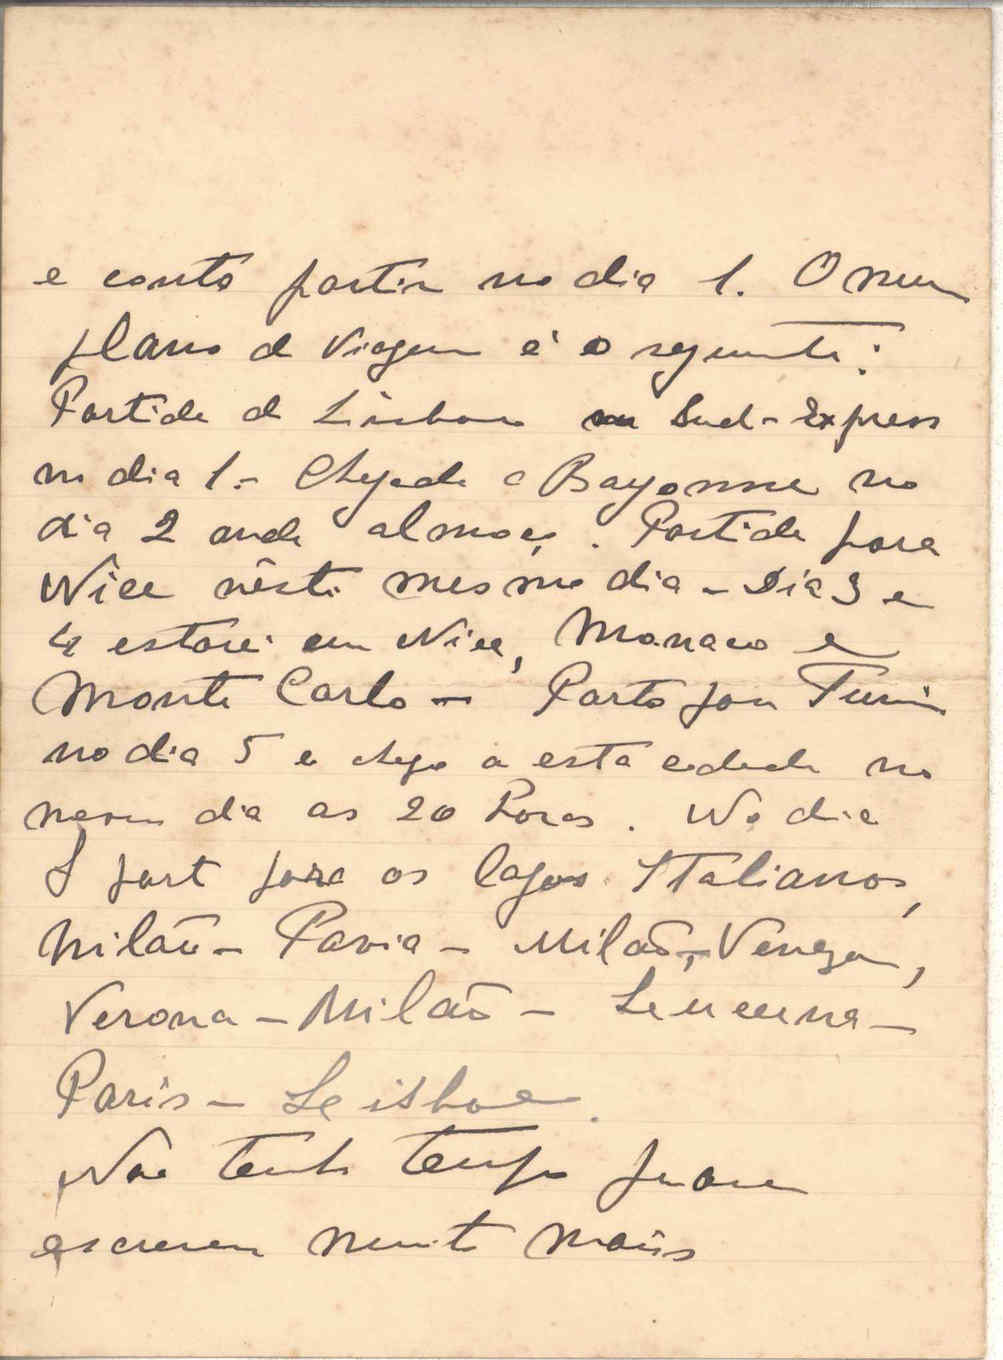 e conto partir no dia 1. O meu
plano de viagem é o seguinte:
Partida de Lisboa no Sud-Express
no dia 1 - Chegada a Bayonne no
dia 2 onde almoço. Partida para
Nice nêste mesmo dia - Dia 3 e
4 estarei em Nice, Monaco e
Monte Carlo - Parto para Turin
no dia 5 e chego a esta cidade no
mesmo dia as 20 horas. No dia
parto para os lagos Italianos,
Milão - Pavia - Milão, Veneza,
Verona - Milão - Lucerna -
Paris - Lisboa.
Não tenho tempo para
escrever muito mais